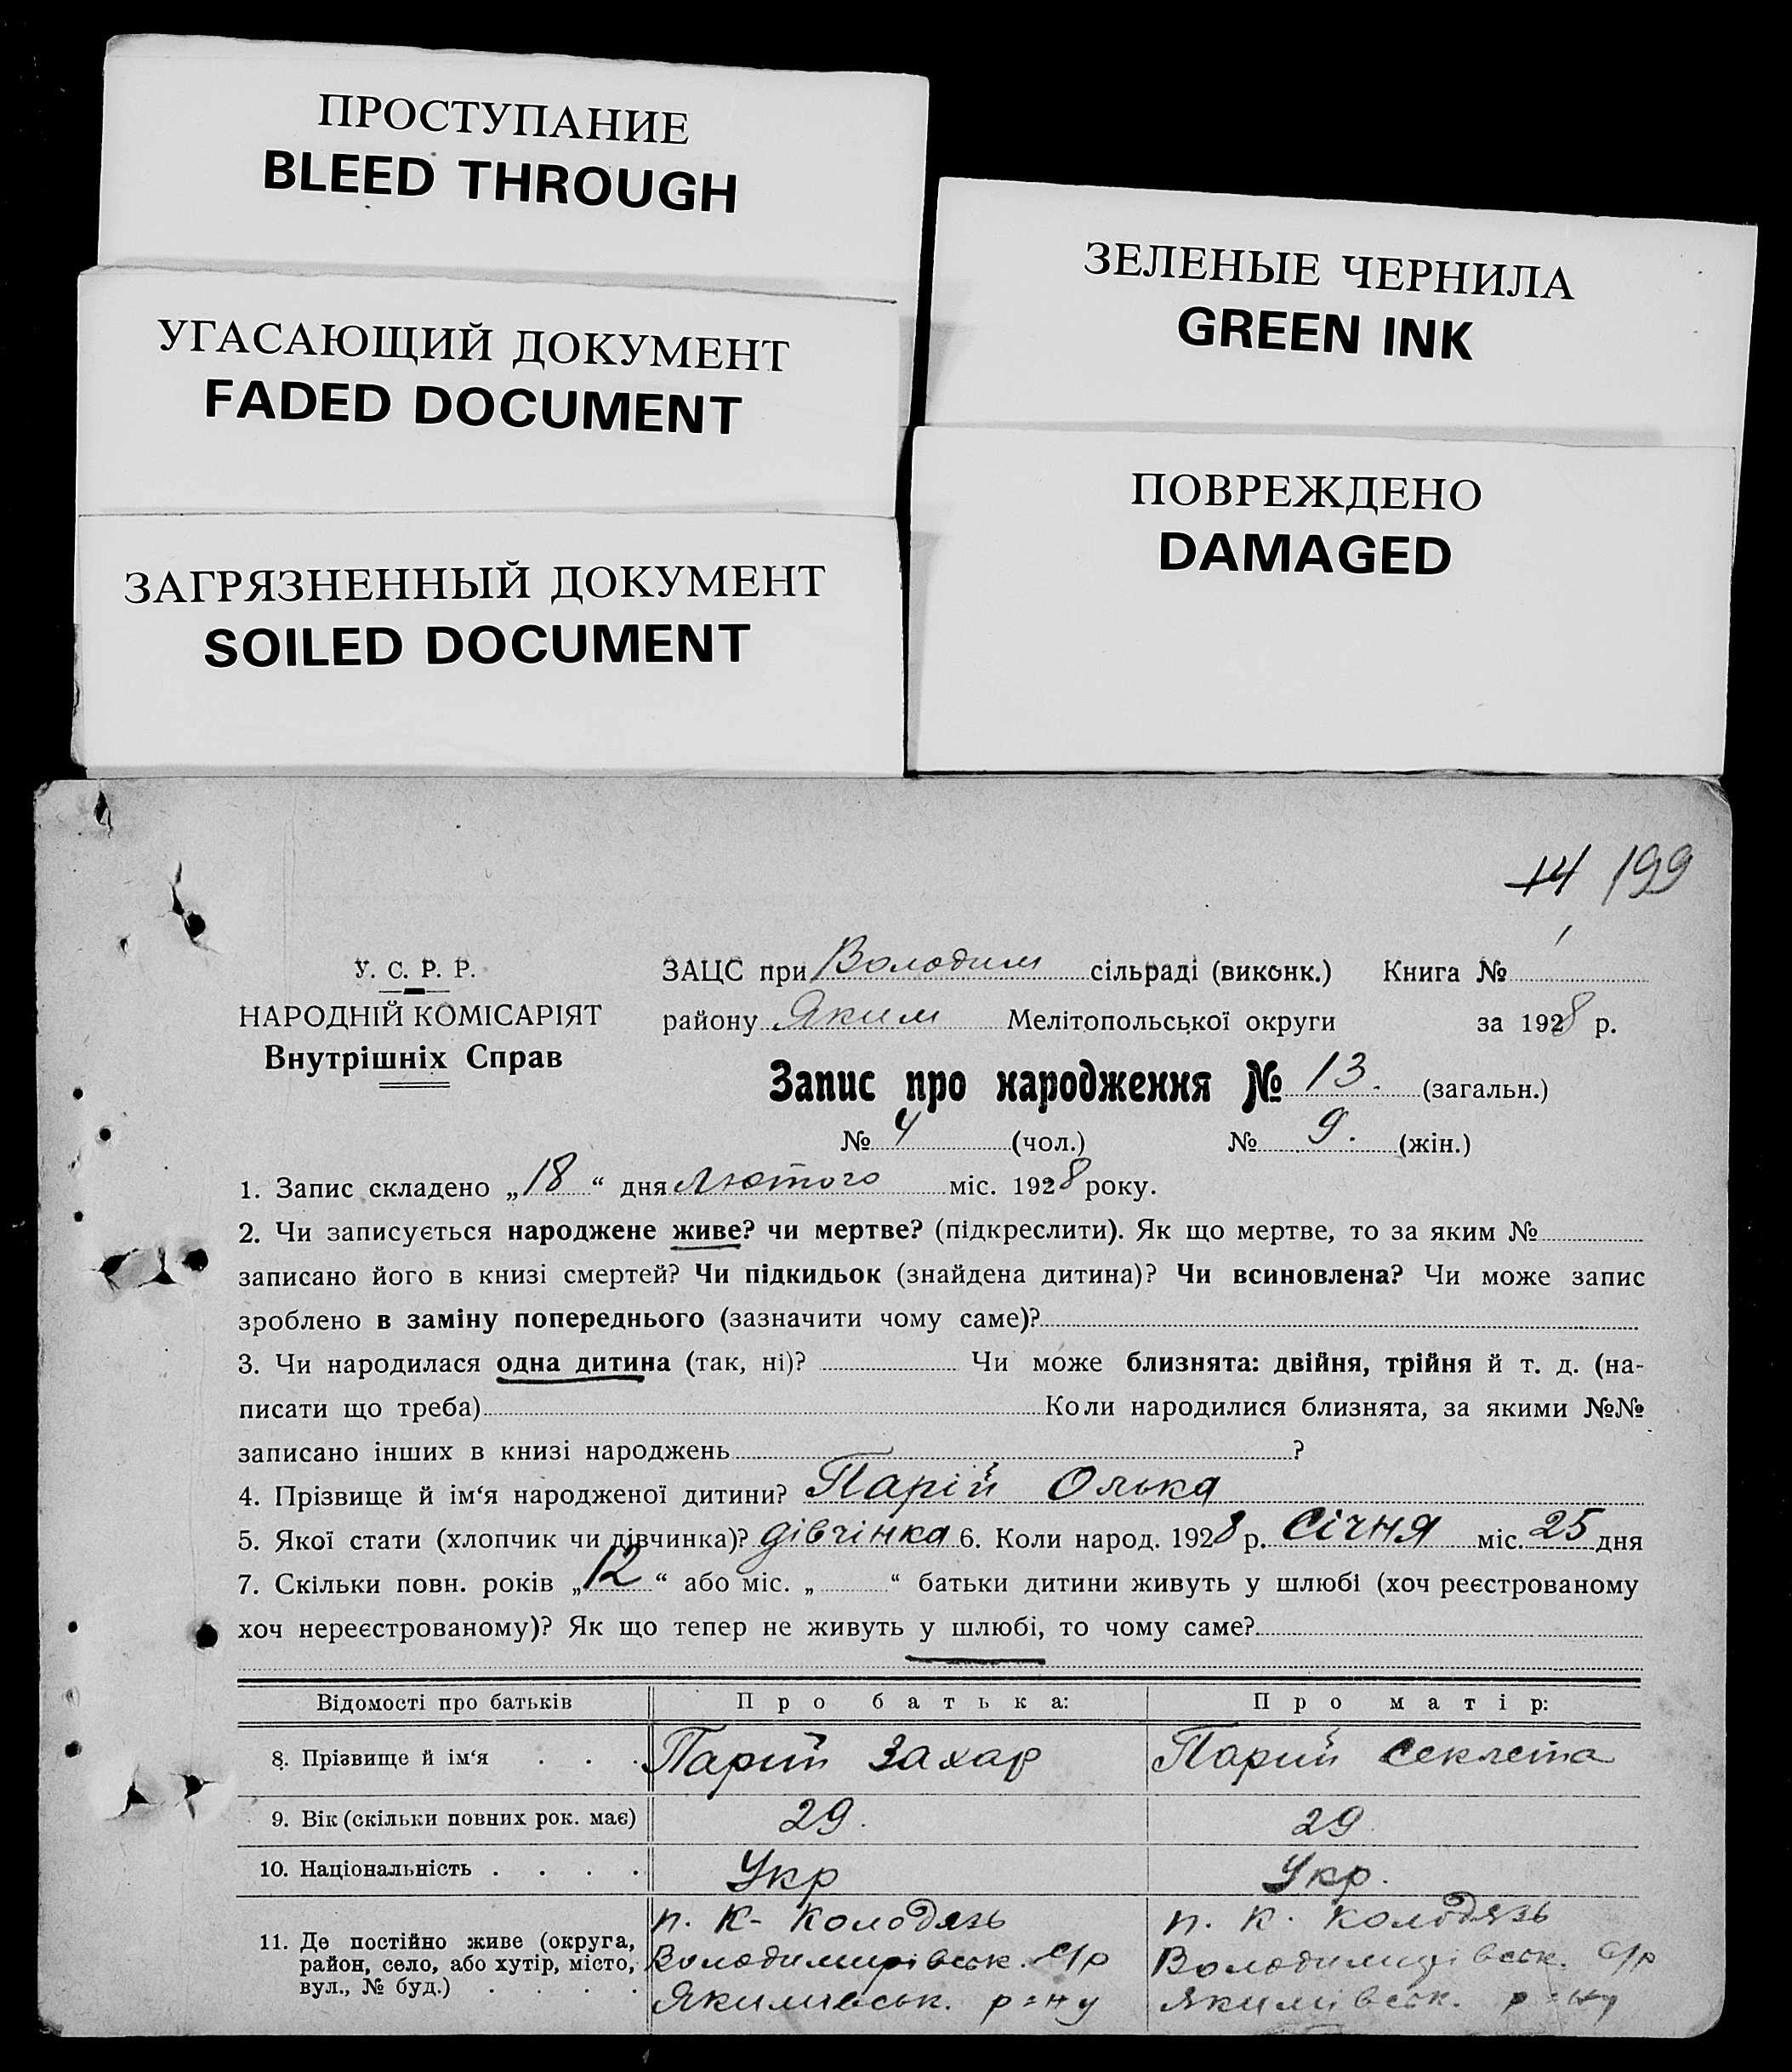 ПРОСТУПАНИЕ
BLEED THROUGH
ЗЕЛЕНЫЕ ЧЕРНИЛА
GREEN INK
УГАСАЮЩИЙ ДОКУМЕНТ
FADED DOCUMENT
ПОВРЕЖДЕНО
DAMAGED
ЗАГРЯЗНЕННЫЙ ДОКУМЕНТ
SOILED DOCUMENT
14 199
У. С. Р. Р.
НАРОДНІЙ КОМІСАРІЯТ
Внутрішніх Справ
ЗАЦС при Володим сільраді (виконк.) Книга № 1
району Яким Мелітопольської округи за 1928 р.
Запис про народження № 13. (загальн.)
№ 4 (чол.) № 9. (жін.)
1. Запис складено „18“ дня Лютого міс. 1928 року.
2. Чи записується народжене живе? чи мертве? (підкреслити). Як що мертве, то за яким №
записано його в книзі смертей? Чи підкидьок (знайдена дитина)? Чи всиновлена? Чи може запис
зроблено в заміну попереднього (зазначити чому саме)?
3. Чи народилася одна дитина (так, ні)? Чи може близнята: двійня, трійня й т. д. (на-
писати що треба) Коли народилися близнята, за якими №№
записано інших в книзі народжень ?
4. Прізвище й ім‘я народженої дитини? Парій Олька
5. Якої стати (хлопчик чи дівчинка)? дівчінка 6. Коли народ. 1928 р. Січня міс. 25 дня
7. Скільки повн. років „12“ або міс. „ “ батьки дитини живуть у шлюбі (хоч реєстрованому
хоч нереєстрованому)? Як що тепер не живуть у шлюбі, то чому саме?
Відомості про батьків Про батька: Про матір:
8. Прізвище й ім‘я . . . Парий Захар Парий Секлета
9. Вік (скільки повних рок. має) 29. 29.
10. Національність . . . . Укр Укр.
11. Де постійно живе (округа,
район, село, або хутір, місто,
вул., № буд.) . . . .
п. К- Колодязь
Володимирівськ. С/р
Якимівськ. р=ну
п. К. Колодязь
Володимирівськ. С/р
Якимівськ. р=ну